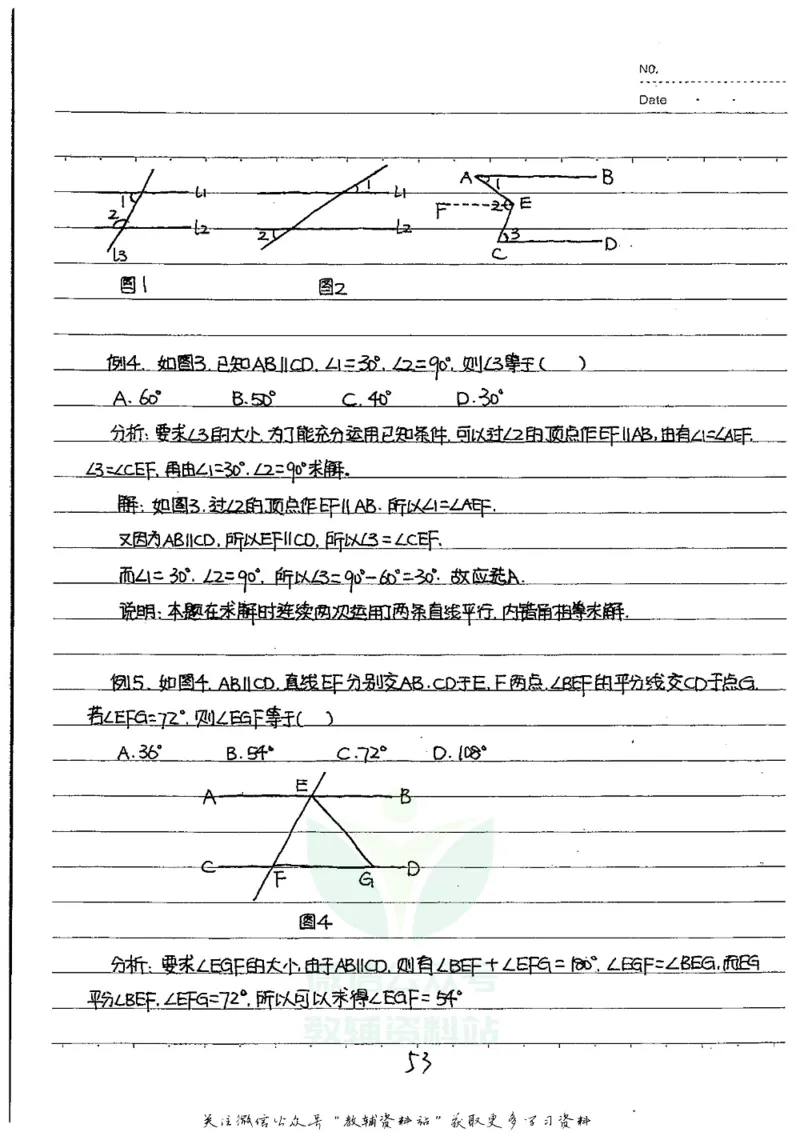 NO.
Date
1 l1
2 l2
l3
1 l1
2 l2
A 1 B
F 2 E
3 D
C
图1 图2
例4. 如图3.已知AB∥CD, ∠1=30°, ∠2=90°, 则∠3等于( )
A. 60° B. 50° C. 40° D. 30°
分析: 要求∠3的大小, 为了能充分运用已知条件, 可以过∠2的顶点作EF∥AB, 由有∠1=∠AEF,
∠3=∠CEF, 再由∠1=30°, ∠2=90°求解。
解: 如图3, 过∠2的顶点作EF∥AB. 所以∠1=∠AEF.
又因为AB∥CD, 所以EF∥CD, 所以∠3=∠CEF.
而∠1=30°, ∠2=90°, 所以∠3=90°-60°=30°. 故应选A.
说明: 本题在求解时连续两次运用了两条直线平行, 内错角相等求解.
例5. 如图4, AB∥CD, 直线EF分别交AB、CD于E、F两点, ∠BEF的平分线交CD于点G,
若∠EFG=72°, 则∠EGF等于( )
A. 36° B. 54° C. 72° D. 108°
A E B
C F G D
图4
分析: 要求∠EGF的大小, 由于AB∥CD, 则有∠BEF+∠EFG=180°, ∠EGF=∠BEG, 而EG
平分∠BEF, ∠EFG=72°, 所以可以求得∠EGF=54°
微信公众号
教辅资料站
53
关注微信公众号"教辅资料站"获取更多学习资料